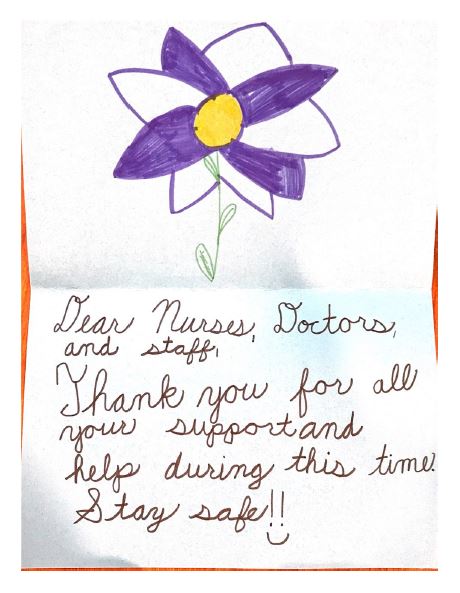 Dear Nurses, Doctors,
and staff,
Thank you for all
your support and
help during this time.
Stay safe!!